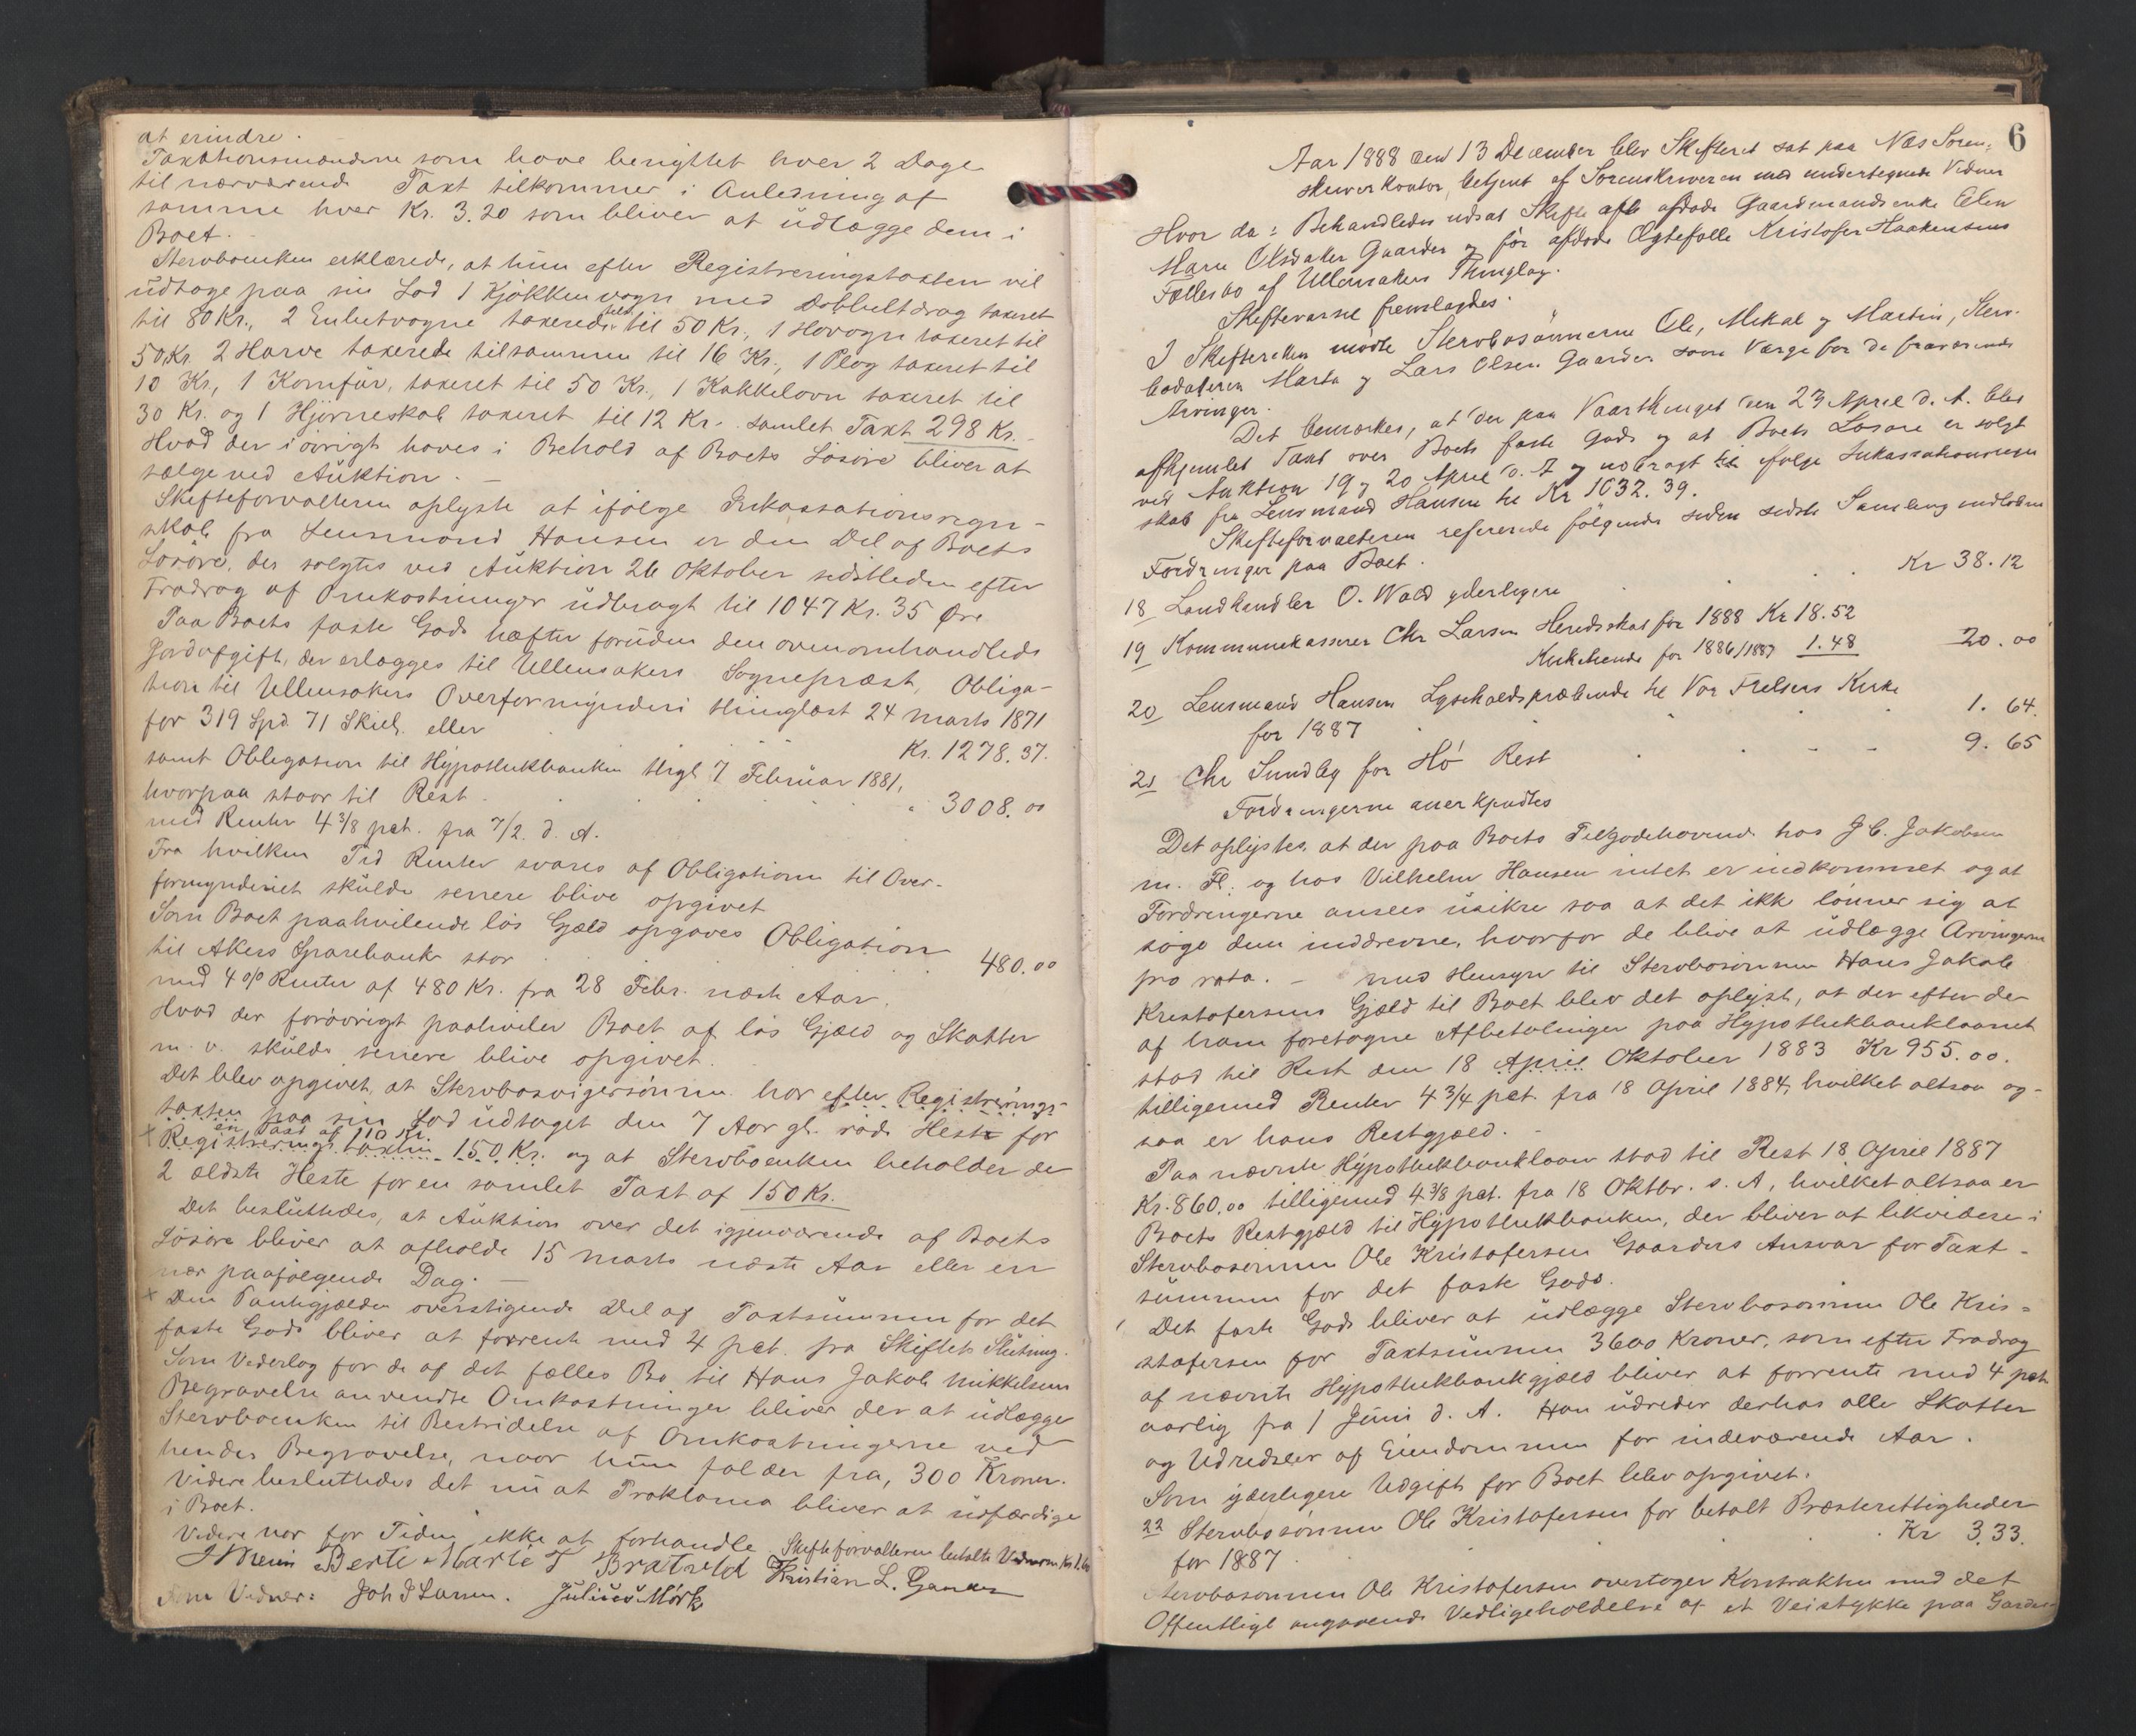 at erindre.
Taxationsmændene som have benyttet hver 2 Dage
til nærværende Taxt tilkommer i Anledning af
samme hver Kr. 3.20 som bliver at udlægge dem i
Boet.
Stervboenken erklærede, at hun efter Registreringstaxten vil
udtage paa sin Lod 1 Kjøkkenvogn med Dobbeltdrag taxeret
til 80 Kr., 2 Enbetvogne taxerede tils. til 50 Kr., 1 Hovogn taxeret til
50 Kr. 2 Harve taxerede tilsammen til 16 Kr., 1 Plog taxeret til
10 Kr., 1 Komfür, taxeret til 50 Kr., 1 Kakkelovn taxeret til
30 Kr. og 1 Hjørneskab taxeret til 12 Kr. samlet Taxt 298 Kr.
Hvad der iøvrigt haves i Behold af Boets Løsøre bliver at
sælge ved Auktion. —
Skifteforvalteren oplyste at ifølge Inkassationsregn-
skab fra Lensmand Hansen er den Del af Boets
Løsøre, der solgtes ved Auktion 26 Oktober sidstleden efter
Fradrag af Omkostninger udbragt til 1047 Kr. 35 Øre
Paa Boets faste Gods hæfter foruden den ovenomhandlede
Jordafgift, der erlægges til Ullensakers Sognepræst, Obliga-
tion til Ullensakers Overformynderi thinglæst 24 Marts 1871
for 319 Spd. 71 Skill. eller Kr. 1278.37.
samt Obligation til Hypothekbanken thgl. 7 Februar 1881,
hvorpaa staar til Rest " 3008.00
med Renter 4 3/8 pct. fra 7/2. d. A.
Fra hvilken Tid Renter svares af Obligationen til Over-
formynderiet skulde senere blive opgivet
Som Boet paahvilende løs Gjæld opgaves Obligation
til Akers Sparebank stor 480.00
med 4 o/o Renter af 480 Kr. fra 28 Febr. næste Aar.
Hvad der forøvrigt paahviler Boet af løs Gjæld og Skatter
m. v. skulde senere blive opgivet.
Det blev opgivet, at Stervbosvigersønnen har efter Registrerings-
taxten paa sin Lod udtaget den 7 Aar gl. røde Hest for
en Taxt af 110 Kr.
x Registreringstaxten 150 Kr. og at Stervboenken beholder de
2 ældste Heste for en samlet Taxt af 150 Kr.
Det besluttedes, at Auktion over det igjenværende af Boets
Løsøre bliver at afholde 15 Marts næste Aar eller en
nær paafølgende Dag. —
x Den Pantegjælden overstigende Del af Taxtsummen for det
faste Gods bliver at forrente med 4 pct. fra Skiftets Slutning.
Som Vederlag for de af det fælles Bo til Hans Jakob Mikkelsens
Begravelse anvendte Omkostninger bliver der at udlægge
Stervboenken til Bestridelse af Omkostningerne ved
hendes Begravelse, naar hun falder fra, 300 Kroner.
Videre besluttedes det nu at Proklama bliver at udfærdige
i Boet.
Videre var for Tiden ikke at forhandle Skifteforvalteren betalte Vidnerne
Berte Marie Bratvold Kristian L.
Som Vidner: Joh S Larsen. Julius Mørk
6
Aar 1888 den 13 December blev Skifteret sat paa Næs Soren-
skriverkontor, betjent af Sorenskriveren med undertegnede Vidner
Hvor da: Behandledes udsat Skifte efter afdøde Gaardmandsenke Elen
Marie Olsdatter Gaarder og før afdøde Ægtefælle Kristofer Haakensens
Fællesbo af Ullensakers Thinglag.
Skiftevarsel fremlagdes.
I Skifteretten mødte Stervbosønnerne Ole, Mikal og Martin, Sterv-
bodatteren Marta og Lars Olsen Gaarder som Værge for de fraværende
Arvinger.
Det bemærkes, at der paa Vaarthinget den 23 April d. A. blev
afhjemlet Taxt over Boets faste Gods og at Boets Løsøre er solgt
ved Auktion 19 og 20 April d. A og udbragt til følge Inkassationsregn-
skab fra Lensmand Hansen til Kr 1032.39.
Skifteforvalteren refererede følgende siden sidste Samling indkomne
Fordringer paa Boet.
18 Landhandler O. Wold yderligere Kr 38.12
19 Kommunekasserer Chr Larsen Heredsskat for 1888 Kr 18.52
for 1886/1887 1.48 20.00
20 Lensmand Hansen til Vor Frelsers Kirke
for 1887 1.64.
21 Chr Sundby for Hø Rest 9.65
Fordringerne anerkjendtes
Det oplystes, at der paa Boets Tilgodehavende hos J C. Jakobsen
m. Fl. og hos Vilhelm Hansen intet er indkommet og at
Fordringerne ansees usikre saa at det ikke lønner sig at
søge dem inddrevne, hvorfor de blive at udlægge Arvingerne
pro rata. — Med Hensyn til Stervbosønnen Hans Jakob
Kristofersens Gjæld til Boet blev det oplyst, at der efter de
af ham foretagne Afbetalinger paa Hypothekbanklaanet
stod til Rest den 18 April Oktober 1883 Kr 955.00.
tilligemed Renter 4 3/4 pct. fra 18 April 1884, hvilket altsaa og-
saa er hans Restgjæld.
Paa nævnte Hypothekbanklaan stod til Rest 18 April 1887
Kr. 860.00 tilligemed 4 3/8 pct. fra 18 Oktbr. s. A, hvilket altsaa er
Boets Restgjæld til Hypothekbanken, der bliver at likvidere i
Stervbosønnen Ole Kristofersen Gaarders Ansvar for Taxt-
summen for det faste Gods.
Det faste Gods bliver at udlægge Stervbosønnen Ole Kris-
stofersen for Taxtsummen 3600 Kroner, som efter Fradrag
af nævnte Hypothekbankgjæld bliver at forrente med 4 pct
aarlig fra 1 Juni d. A. Han udreder derhos alle Skatter
og Udredsler af Eiendommen for indeværende Aar.
Som yderligere Udgift for Boet blev opgivet.
22 Stervbosønnen Ole Kristofersen for betalt Præsterettigheder
for 1887 Kr 3.33.
Stervbosønnen Ole Kristofersen overtager Kontrakten med det
Offentlige angaaende Vedligeholdelse af et Veistykke paa